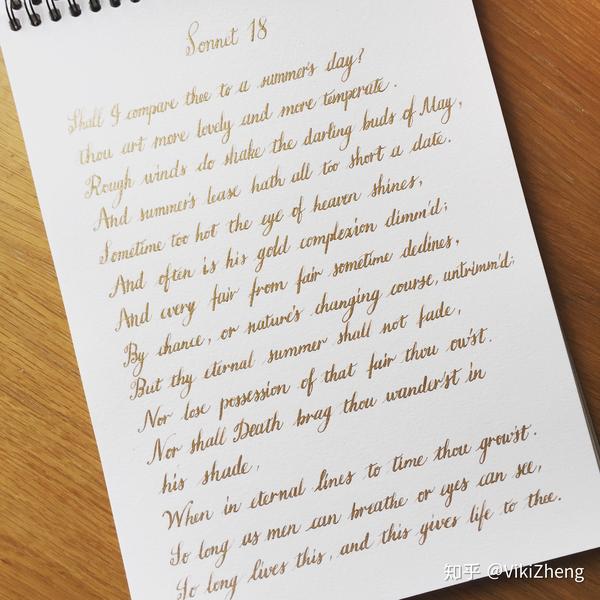 Sonnet 18
Shall I compare thee to a summer's day?
thou art more lovely and more temperate.
Rough winds do shake the darling buds of May,
And summer's lease hath all too short a date.
Sometime too hot the eye of heaven shines,
And often is his gold complexion dimm'd;
And every fair from fair sometime declines,
By chance, or nature's changing course, untrimm'd;
But thy eternal summer shall not fade,
Nor lose possession of that fair thou ow'st.
Nor shall Death brag thou wander'st in
his shade,
When in eternal lines to time thou grow'st.
So long as men can breathe or eyes can see,
So long lives this, and this gives life to thee.
知乎 @VikiZheng